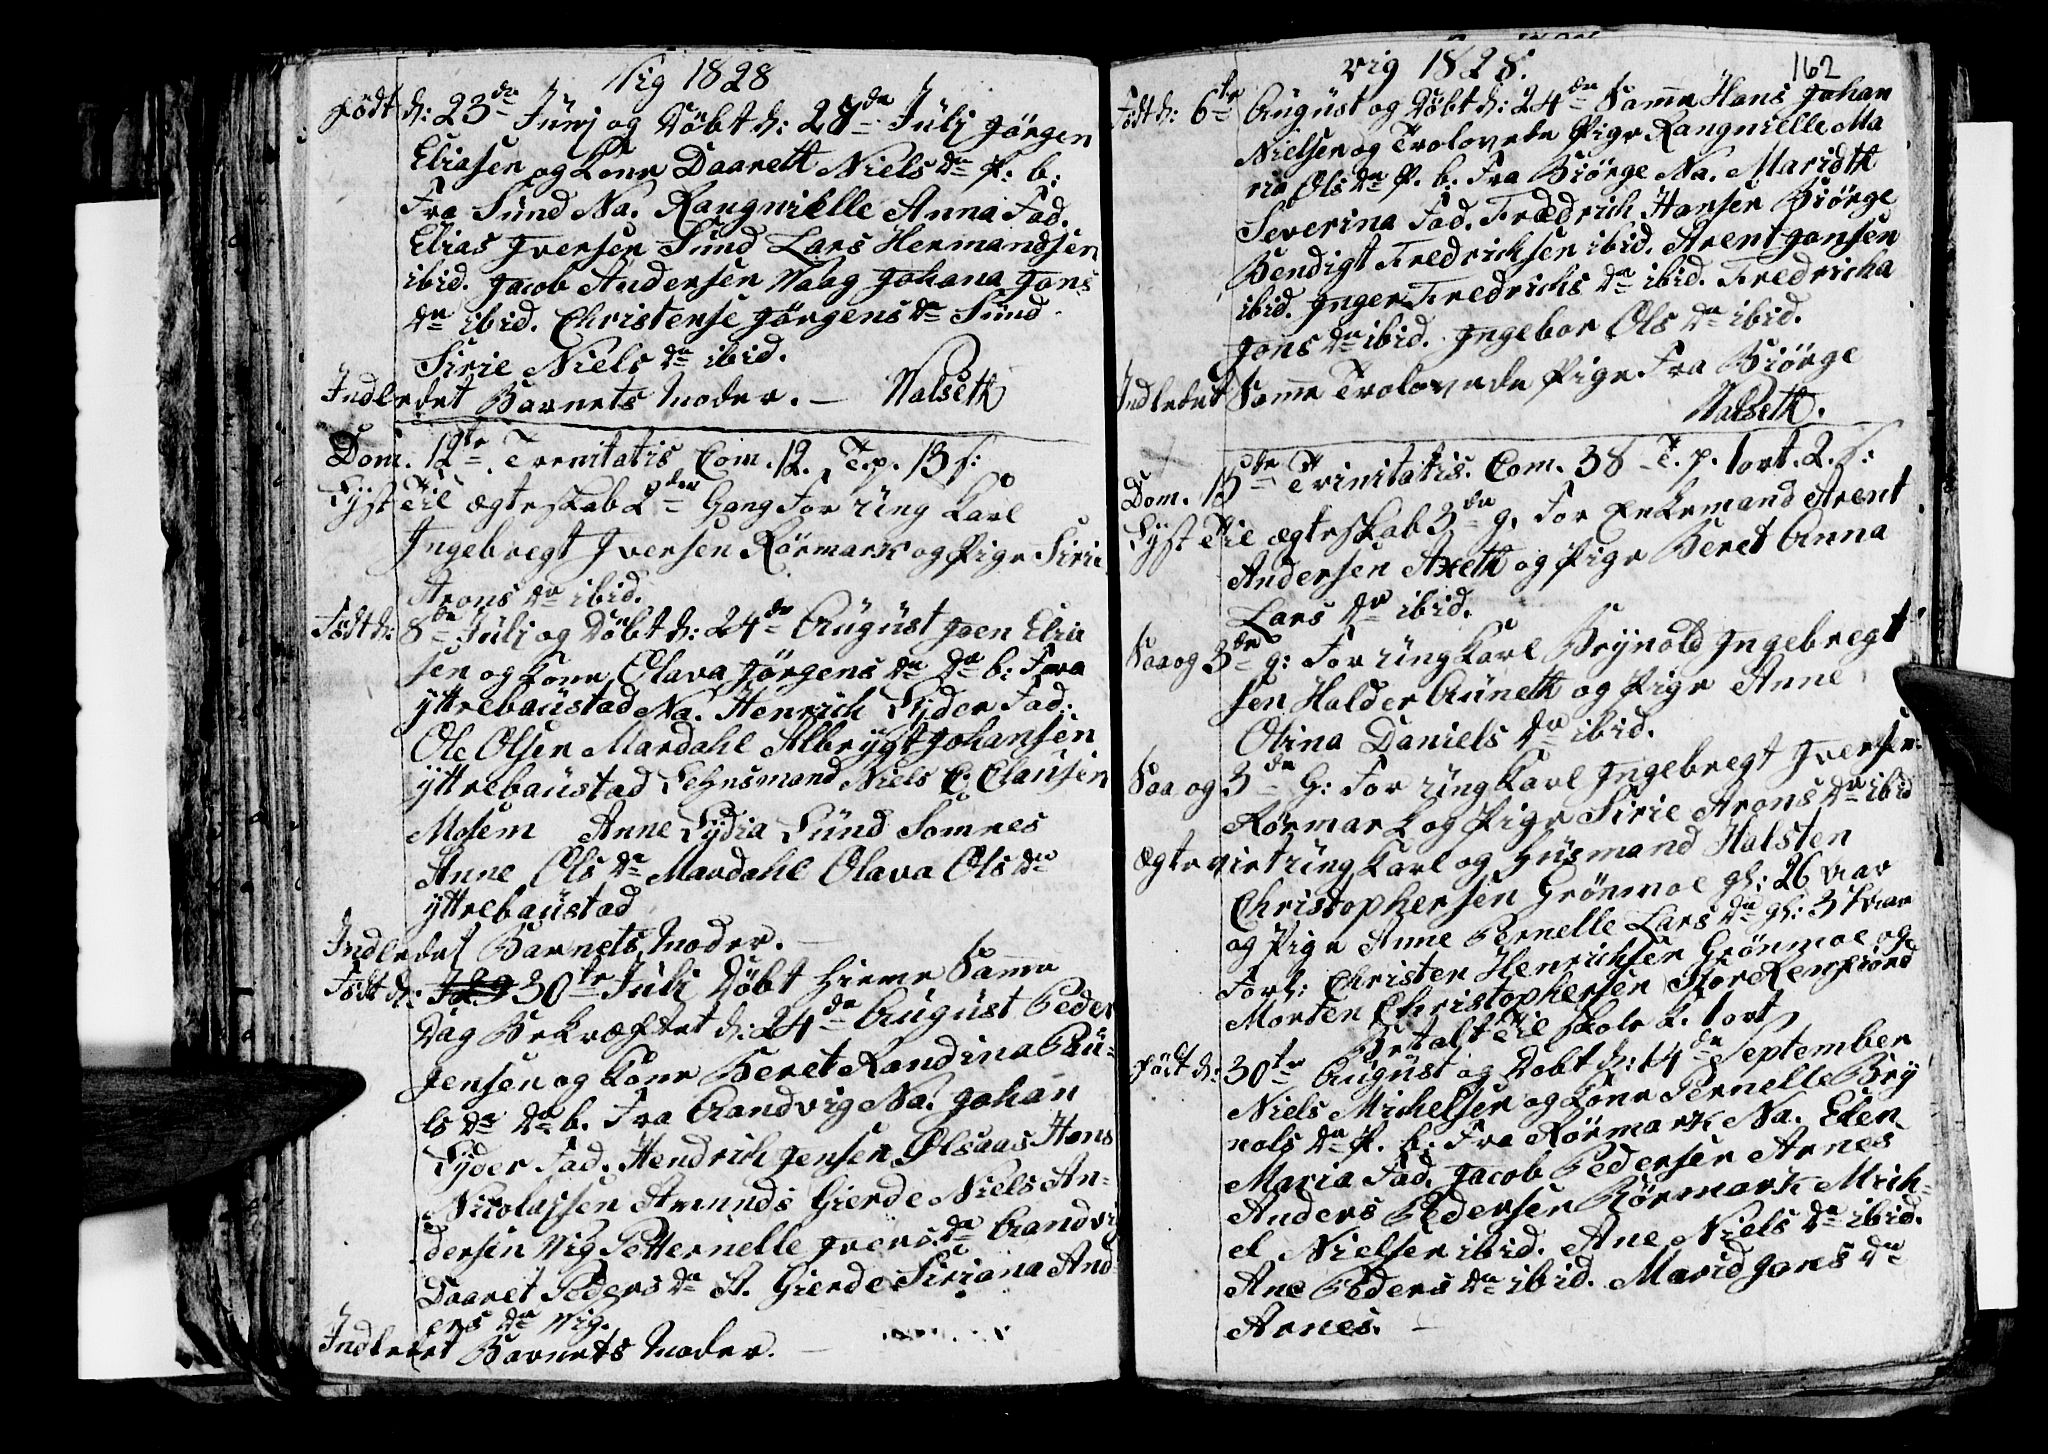 Vig 1828
Født d: 23de Junj og Døbt d: 27de Julj Jörgen
Eliasen og Kone Daarett Niels Da P: b:
Fra Sund Na. Rangnielle Anna Fad.
Elias Iversen Sund Lars Hermandsen
ibid. Jacob Andersen Vaag Johana Jons
Da ibid. Christense Jörgens Da Sund
Sirie Niels Da ibid.
Indledet Barnets Moder. — Valseth
Dom. 12te Trenitatis Com. 12. T.p. 13 s:
Lyst Til ægteskab 2den Gang For Ung Karl
Ingebregt Iversen Rörmark og Pige Sirie
Arons Da ibid.
Født d: 8de Julj og Døbt d: 24de August Joen Elia
sen og Kone Olava Jörgens Da Da b: Fra
yttrebaustad Na. Henrich Lyder Fad:
Ole Olsen Mardahl Albrygt Johansen
yttrebaustad Lehnsmand Niels C. Clausen
Mosem Anne Lydia Lund Somnes
Anne Ols Da Mardahl Olava Ols Da
yttrebaustad
Indledet Barnets Moder. —
Født d: 30te Julj Døbt hieme Samme
Dag Bekræftet d: 24de August Peder
Jensen og Kone Beret Randina Pau-
ls Da Da b. Fra Aandvig Na. Johan
Lyder Fad. Hendrich Jensen Olsaas Hans
Nicolajsen Amunds Gierde Niels An-
dersen Vig Petternelle Ivers Da Aandvi
Daaret Peders Da A. Gierde Siriana And
ers Da Vig.
Indledet Barnets Moder. —
Vig 1828. 162
Født d: 6te August og Døbt d: 24de Samme Hans Johan
Nielsen og Trolovede Pige Rangnielle Ma
ria Ols Da P. b. Fra Biörge Na. Marioth
Severina Fad. Frædrich Hansen Biörge
Bendigt Fredrichsen ibid. Arent Jonsen
ibid. Inger Fredrichs Da ibid. Fredricha
Jons Da ibid. Ingebor Ols Da ibid.
Indledet Samme Trolovede Pige Fra Biörge
Valseth.
Dom. 13de Trinitatis. Com. 38 T. p. 1 ort. 2. s:
Lyst Til ægteskab 3de g. For Enkemand Arent
Andersen Axeth og Pige Beret Anna
Lars Da ibid.
Saa og 3de g: For Ung Karl Brynold Ingebregt
sen Halder Auneth og Pige Anne
Olina Daniels Da ibid.
Saa og 3de G: For Ung Karl Ingebregt Iversen
Rörmark og Pige Sirie Arons Da ibid
Ægteviet Ung Karl og Husmand Halsten
Christophersen Grönmoe gl: 26 Aar
og Pige Anne Pernelle Lars Da gl: 31 Aar
Forl: Christen Henrichsen Grönmoe og
Morten Christophersen Store Remfiord
Betalt Til Skole k. 1 ort
Født d: 30te August og Døbt d: 14de September
Niels Michelsen og Kone Pernelle Bry
nols Da P. b: Fra Rörmark Na. Elen
Maria Fad. Jacob Pedersen Arnes
Anders Pedersen Rörmark Mich-
el Nielsen ibid. Ane Niels Da ibid.
Ane Peders Da ibid. Marid Jons Da
Arnes. —